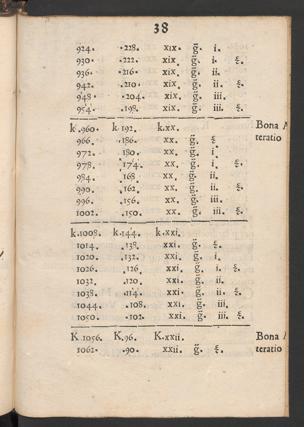 38
924. .228. xix. g̃. i.
930. .222. xix. g̃. i. ξ.
936. .216. xix. g̃. ii.
942. .210. xix. g̃. ii. ξ.
948. .204. xix. g̃. iii.
954. .198. xix. g̃. iii. ξ.
k.960. k.192. k.xx. Bona A
966. .186. xx. g̃. ξ teratio
972. 180. xx. g̃. i.
978. 174. xx. g̃. i. ξ.
984. 168 xx. g̃. ii.
990. 162. xx. g̃. ii. ξ.
996. 156. xx. g̃. iii.
1002. .150. xx. g̃. iii. ξ.
k.1008. k.144. k.xxi.
1014. .138. xxi. g̃. ξ.
1020. .132. xxi. g̃. i.
1026. .126 xxi. g̃. i. ξ.
1032. .120. xxi. g̃. ii.
1038. .114. xxi. g̃. ii. ξ.
1044. .108. xxi. g̃. iii.
1050. .102. xxi. g̃. iii. ξ.
K.1056. K.96. K.xxii. Bona A
1062. .90. xxii. g̃. ξ. teratio